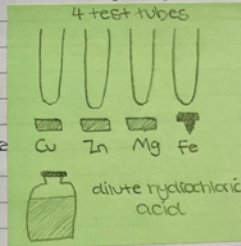 4 test tubes
Cu Zn Mg Fe
dilute hydrochloric
acid